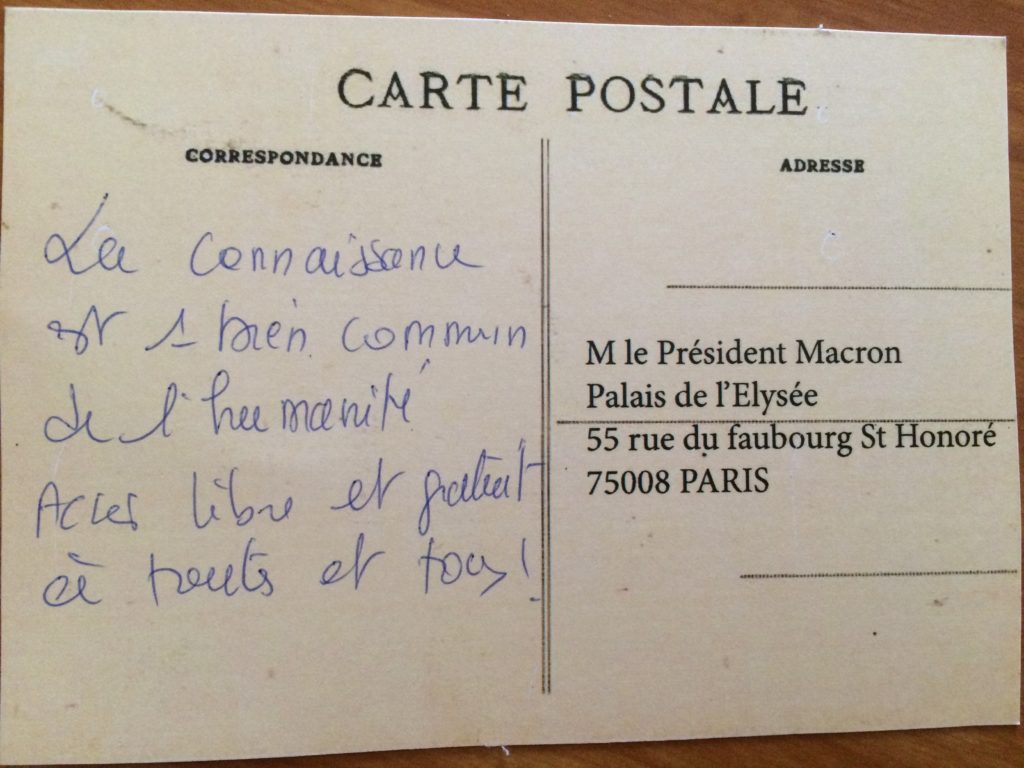 CARTE POSTALE
CORRESPONDANCE
La connaissance
est 1 bien commun
de l'humanité
Accès libre et gratuit
à toutes et tous!
ADRESSE
M le Président Macron
Palais de l'Elysée
55 rue du faubourg St Honoré
75008 PARIS